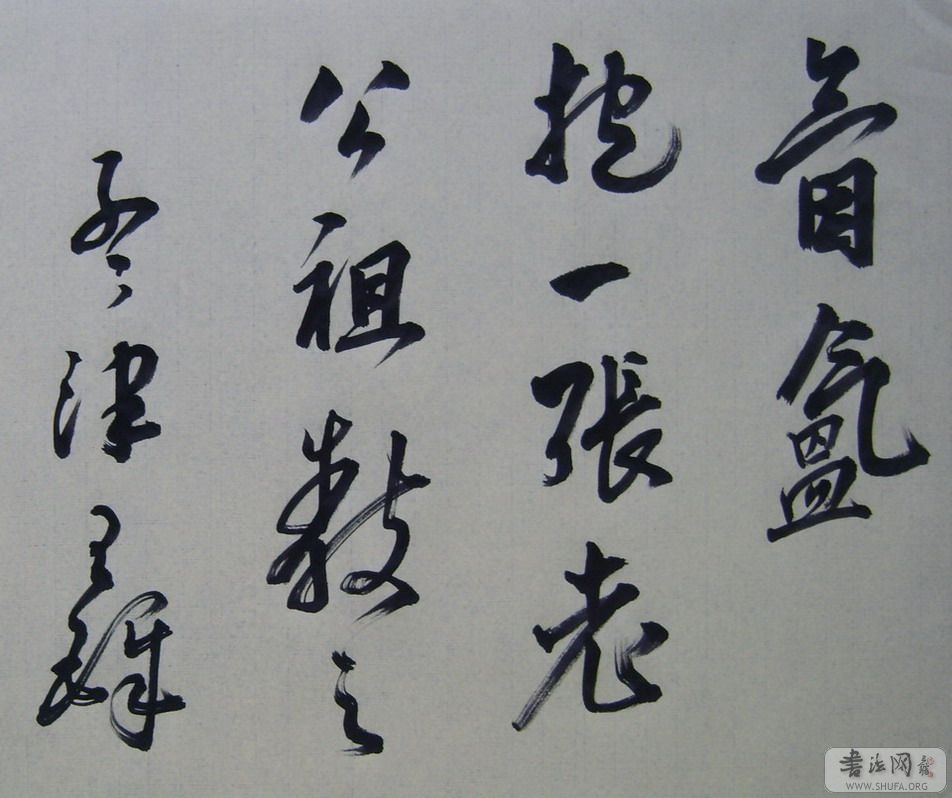 氤氳
抱一張老
公祖教之
孟津王鐸
書法网
WWW.SHUFA.ORG